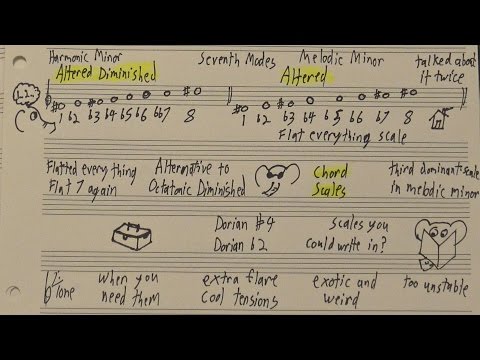 Harmonic Minor Seventh Modes Melodic Minor talked about
Altered Diminished Altered it twice
1 b2 b3 b4 b5 b6 bb7 8 1 b2 b3 b4 b5 b6 b7 8
Flat everything scale
Flatted everything Alternative to Chord third dominant scale
Flat 7 again Octatonic Diminished Scales in melodic minor
Dorian #4 scales you
Dorian b2 could write in?
Tone when you extra flare exotic and too unstable
need them cool tensions weird